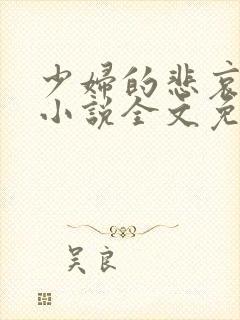 少婦的悲哀
小說全文免
吴良